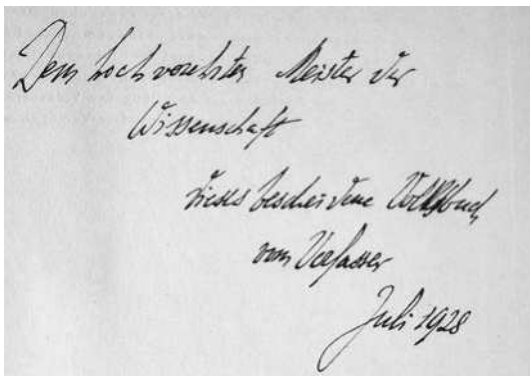 Dem hochverehrten Meister der
Wissenschaft
dieses bescheidene Volksbuch
vom Verfasser
Juli 1928